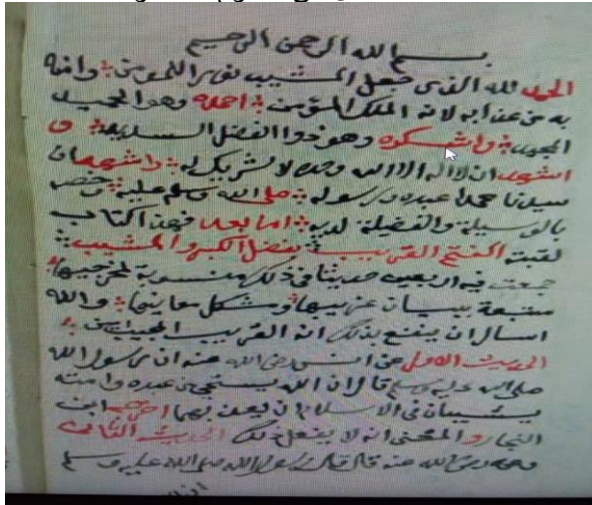 بسم الله الرحمن الرحيم
الحمد لله الذى جعل المشيب نورا للمومن وامنه
به من عذابه لانه الملك المؤمن احمده وهو الحميد
المجيد واشكره وهو ذوا الفضل السديد و
اشهد ان لا اله الا الله وحده لا شريك له واشهد ان
سيدنا محمدا عبده ورسوله صلى الله وسلم عليه وخصه
بالوسيلة والفضيلة لديه اما بعد فهذا كتاب
لقبته الفتح القريب بفضل الكبر والمشيب
جمعت فيه اربعين حديثا فى ذلك منسوبة لمخرجيها
متبعة ببيان غريبها ومشكل معانيها والله
اسال ان ينفع بذلك انه القريب المجيب
الحديث الاول عن انس رضى الله عنه ان رسول الله
صلى الله عليه وسلم قال ان الله يستحى من عبده وامته
يشيبان فى الاسلام ان يعذبهما اخرجه ابن
النجار والمعنى انه لا يفعل ذلك الحديث الثانى
وعنه رضى الله عنه قال قال رسول الله صلى الله عليه وسلم